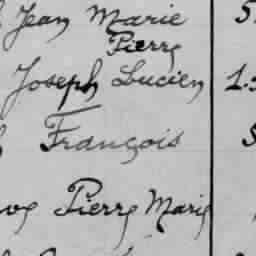 Jean Marie
Pierre
Joseph Lucien
François
Pierre Marie